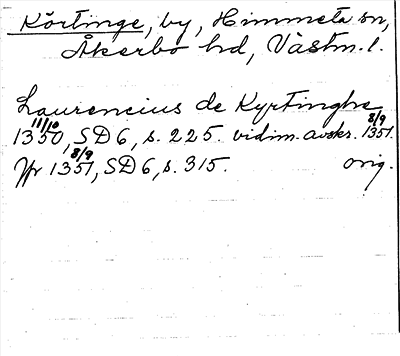 Körtinge, by, Himmeta sn,
Åkerbo hd, Västm. l.
Laurencius de Kyrtinghe
1350 11/10, SD 6, s. 225. vidim. avskr. 1351 8/9.
Jfr 1351 8/9, SD 6, s. 315. orig.